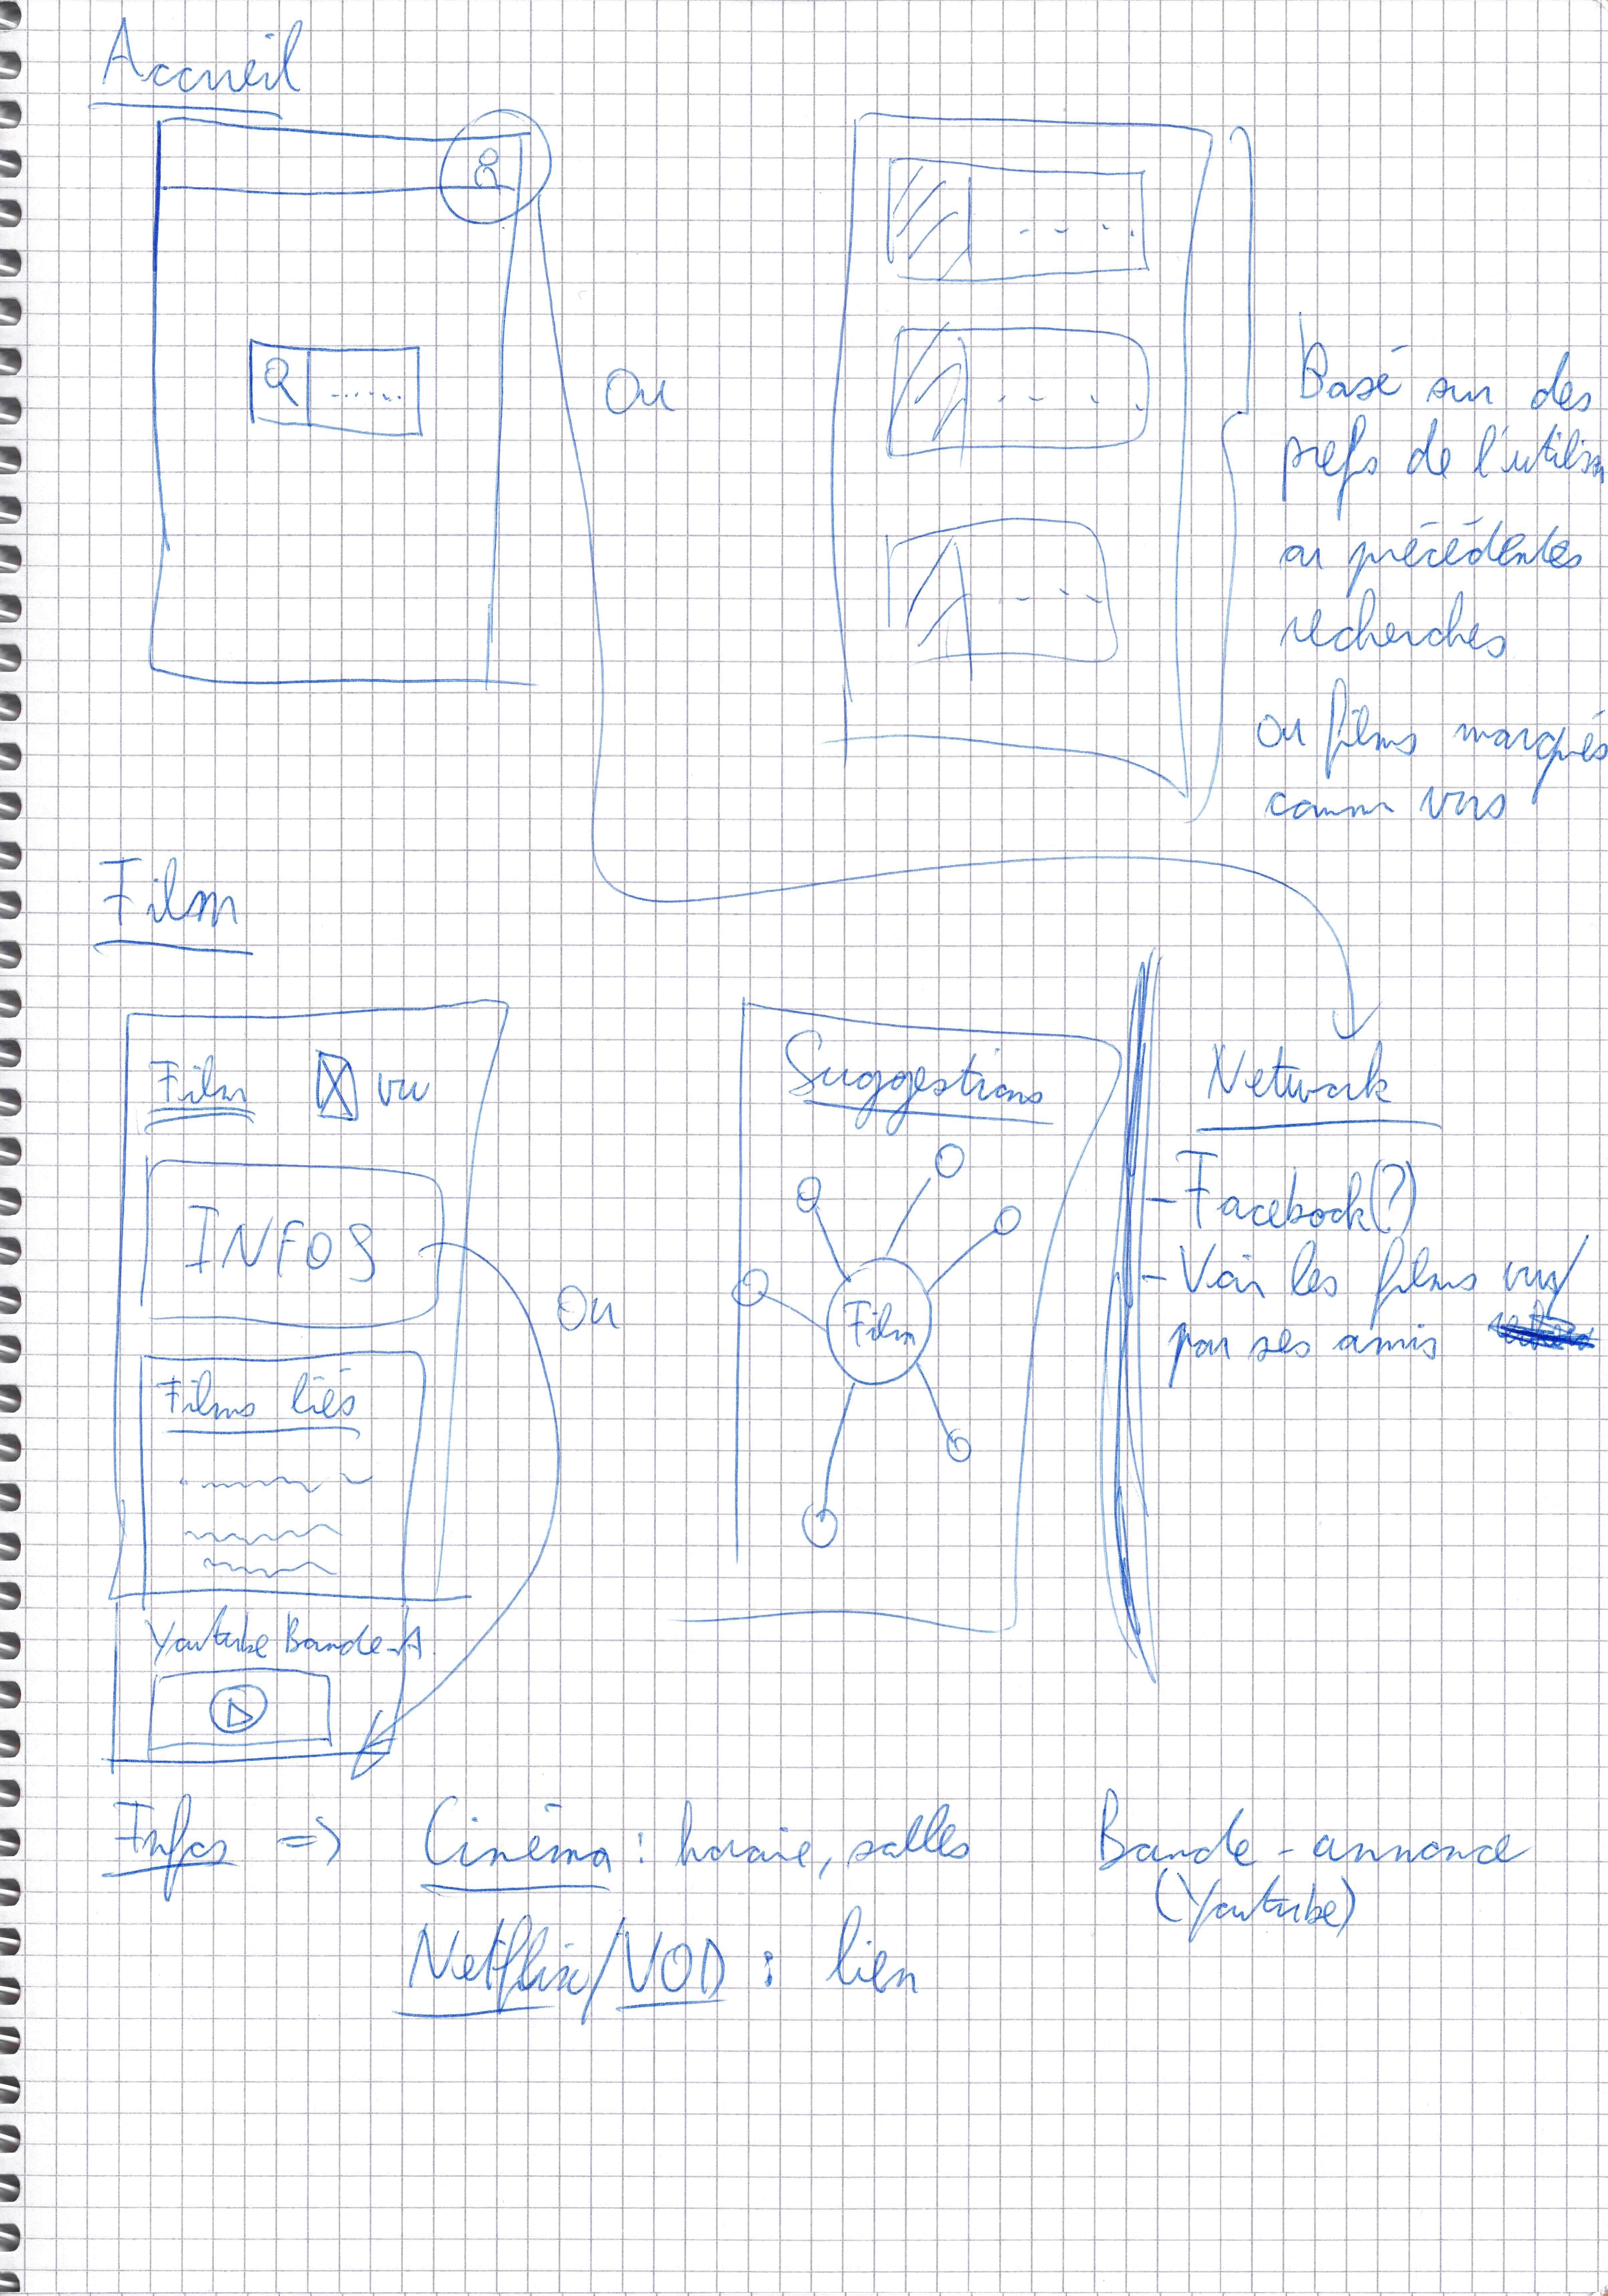 Accueil
Ou
Basé sur des
prefs de l'utilisa
ou précédentes
recherches
ou films marqués
comm vus
Film
Film vu
INFOS
Films liés
Youtube Bande-A.
Ou
Suggestions
Film
Network
- Facebook(?)
- Voir les films vus
par ses amis
Infos => Cinéma : horaire, salles
Netflix/VOD : lien
Bande-annonce
(Youtube)